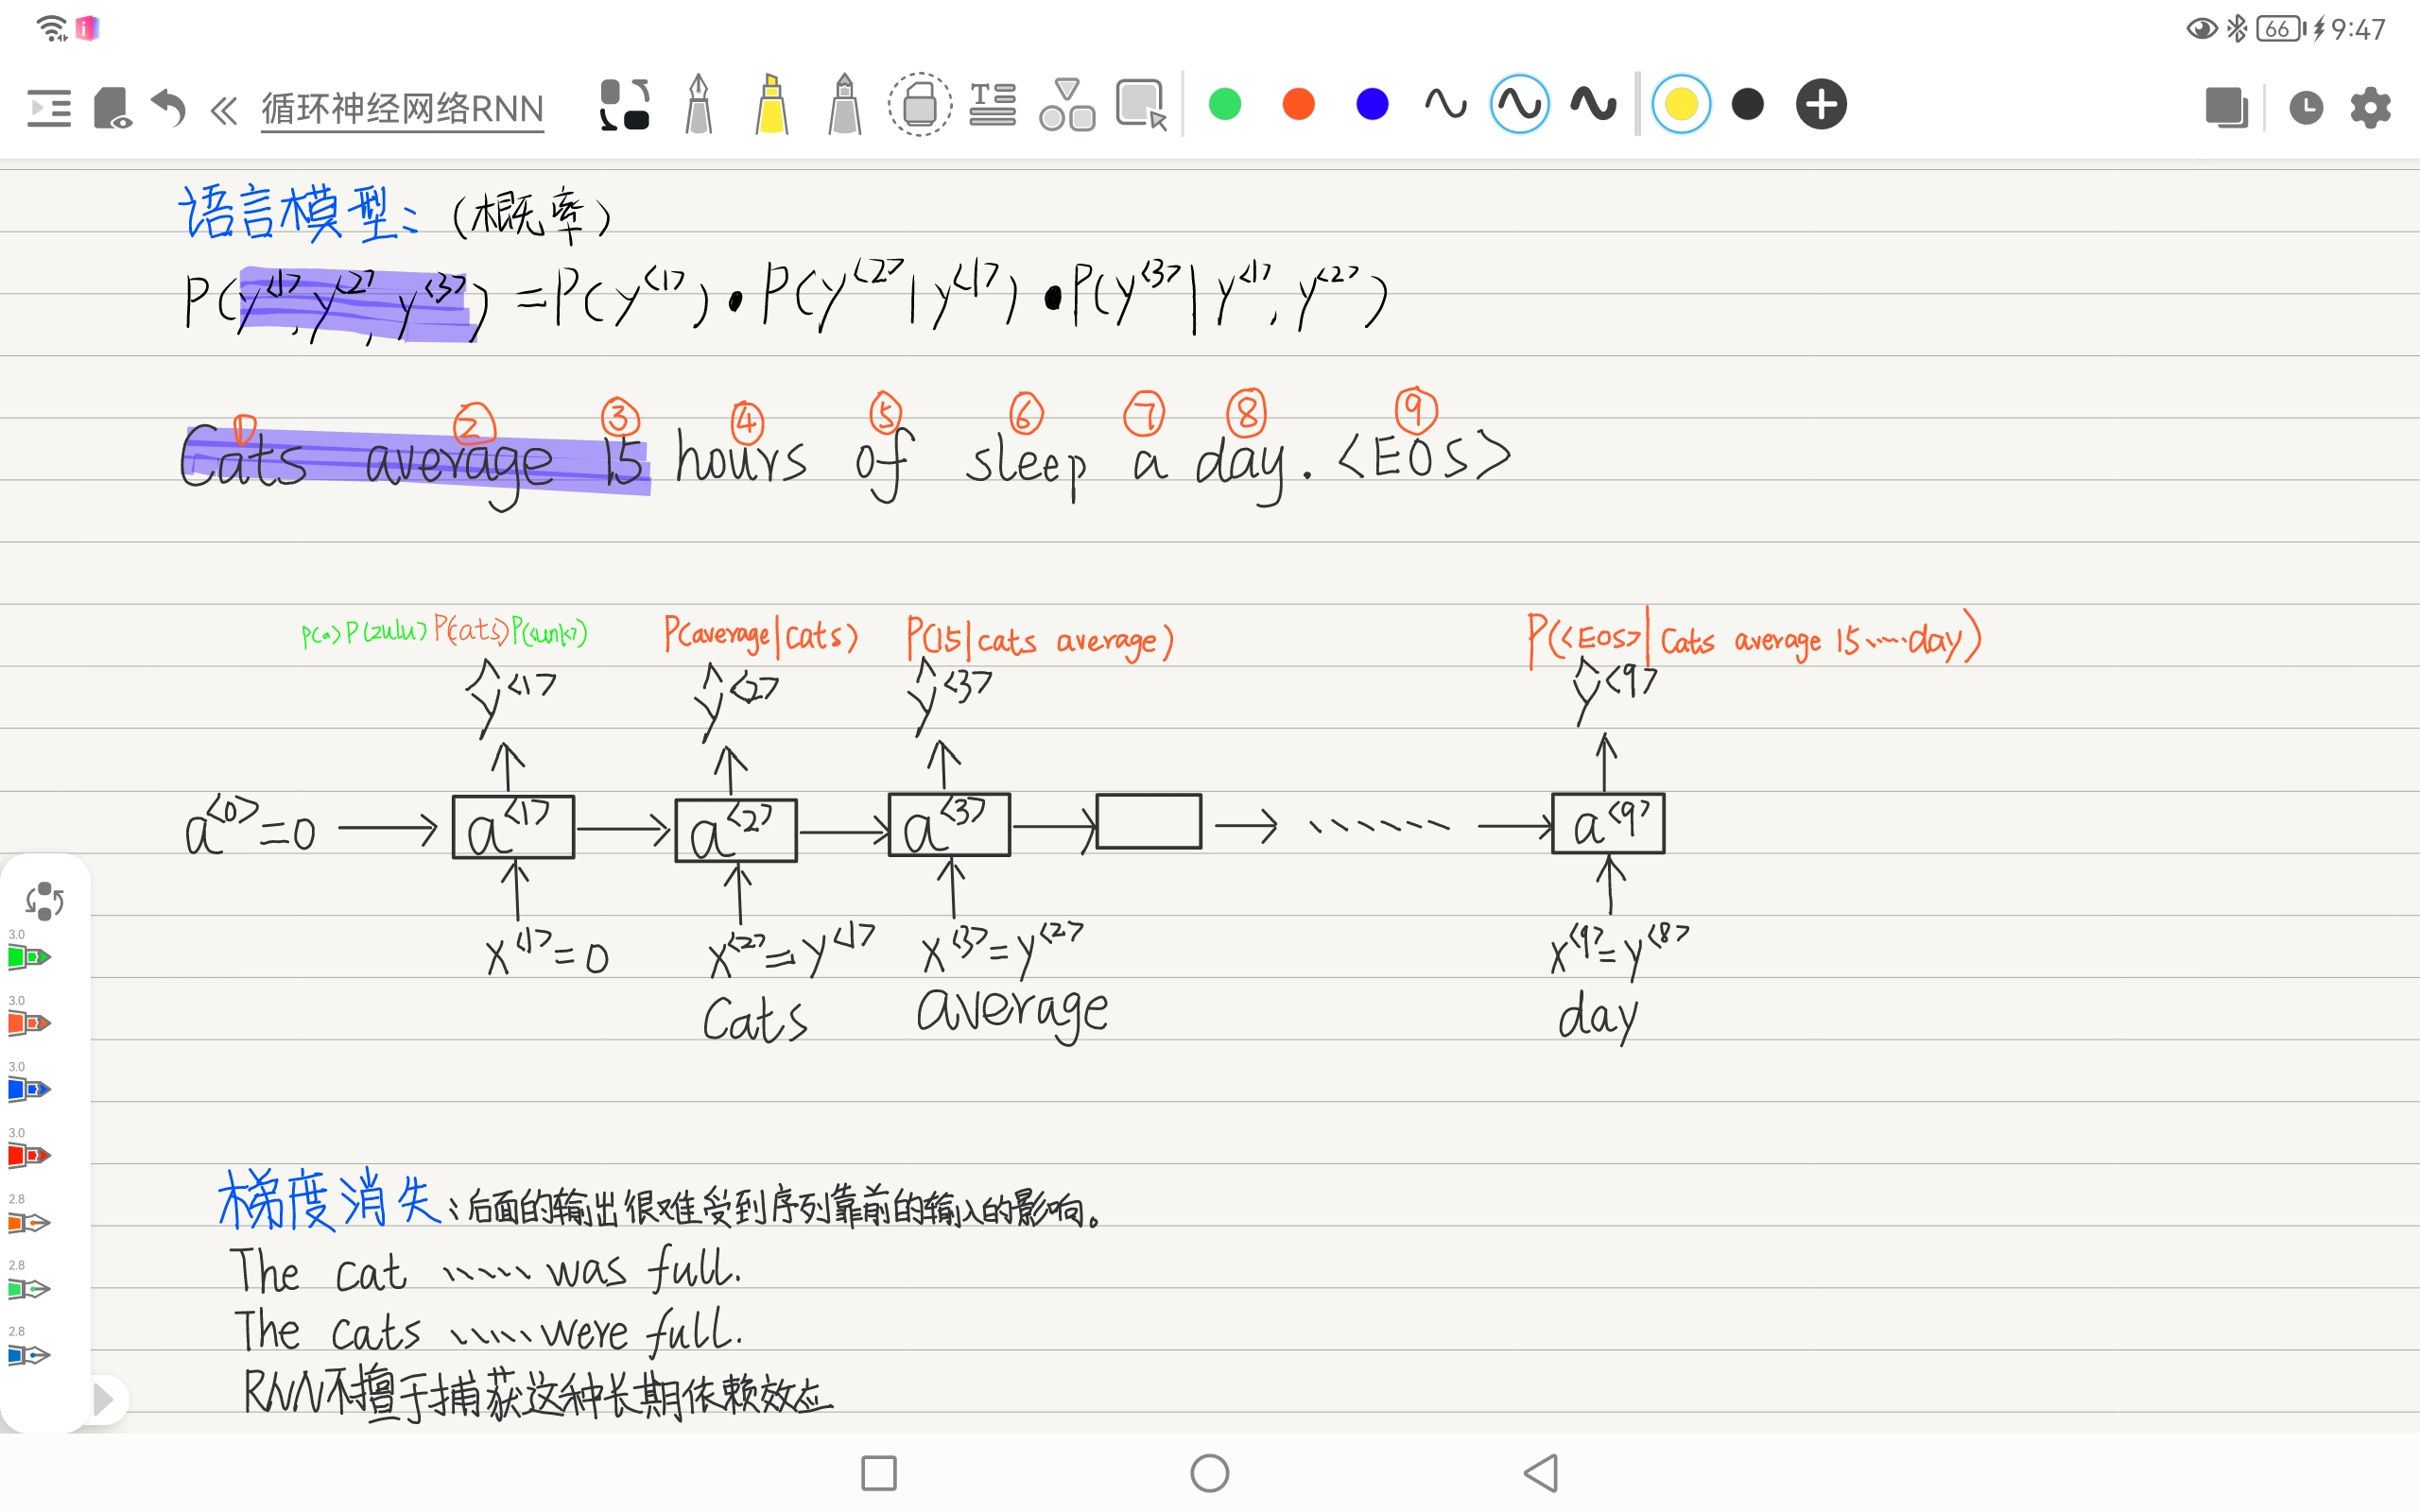 66 9:47
循环神经网络RNN
语言模型：（概率）
P(y<1>, y<2>, y<3>) = P(y<1>) • P(y<2>|y<1>) • P(y<3>|y<1>, y<2>)
① ② ③ ④ ⑤ ⑥ ⑦ ⑧ ⑨
Cats average 15 hours of sleep a day. <EOS>
P(a) P(zulu) P(cats) P(<unk>) P(average|cats) P(15|cats average) P(<EOS>|Cats average 15……day)
ŷ<1> ŷ<2> ŷ<3> ŷ<9>
a<0>=0 a<1> a<2> a<3> …… a<9>
x<1>=0 x<2>=y<1> x<3>=y<2> x<9>=y<8>
Cats average day
3.0
3.0
3.0
3.0
2.8
2.8
2.8
梯度消失：后面的输出很难受到序列靠前的输入的影响。
The cat …… was full.
The cats …… were full.
RNN不擅于捕获这种长期依赖效应